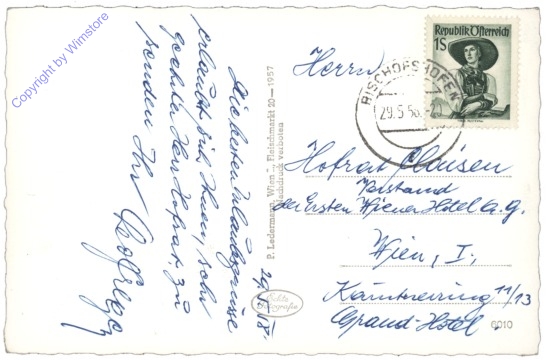 Copyright by Wimstore
Die besten Urlaubsgrüsse
erlaubt sich Ihnen, sehr
geehrter Herr Hofrat zu
senden Ihr
29.5.58.
P. Ledermann, Wien I., Fleischmarkt 20 — 1957
Nachdruck verboten
Echte
Fotografie
Republik Österreich
1S
BISCHOFSHOFEN
29.5.58
Herrn
Hofrat Clausen
Vorstand
der Ersten Wiener Hotel A.G.
Wien, I.,
Kärntnerring 11/13
Grand-Hotel.
6010